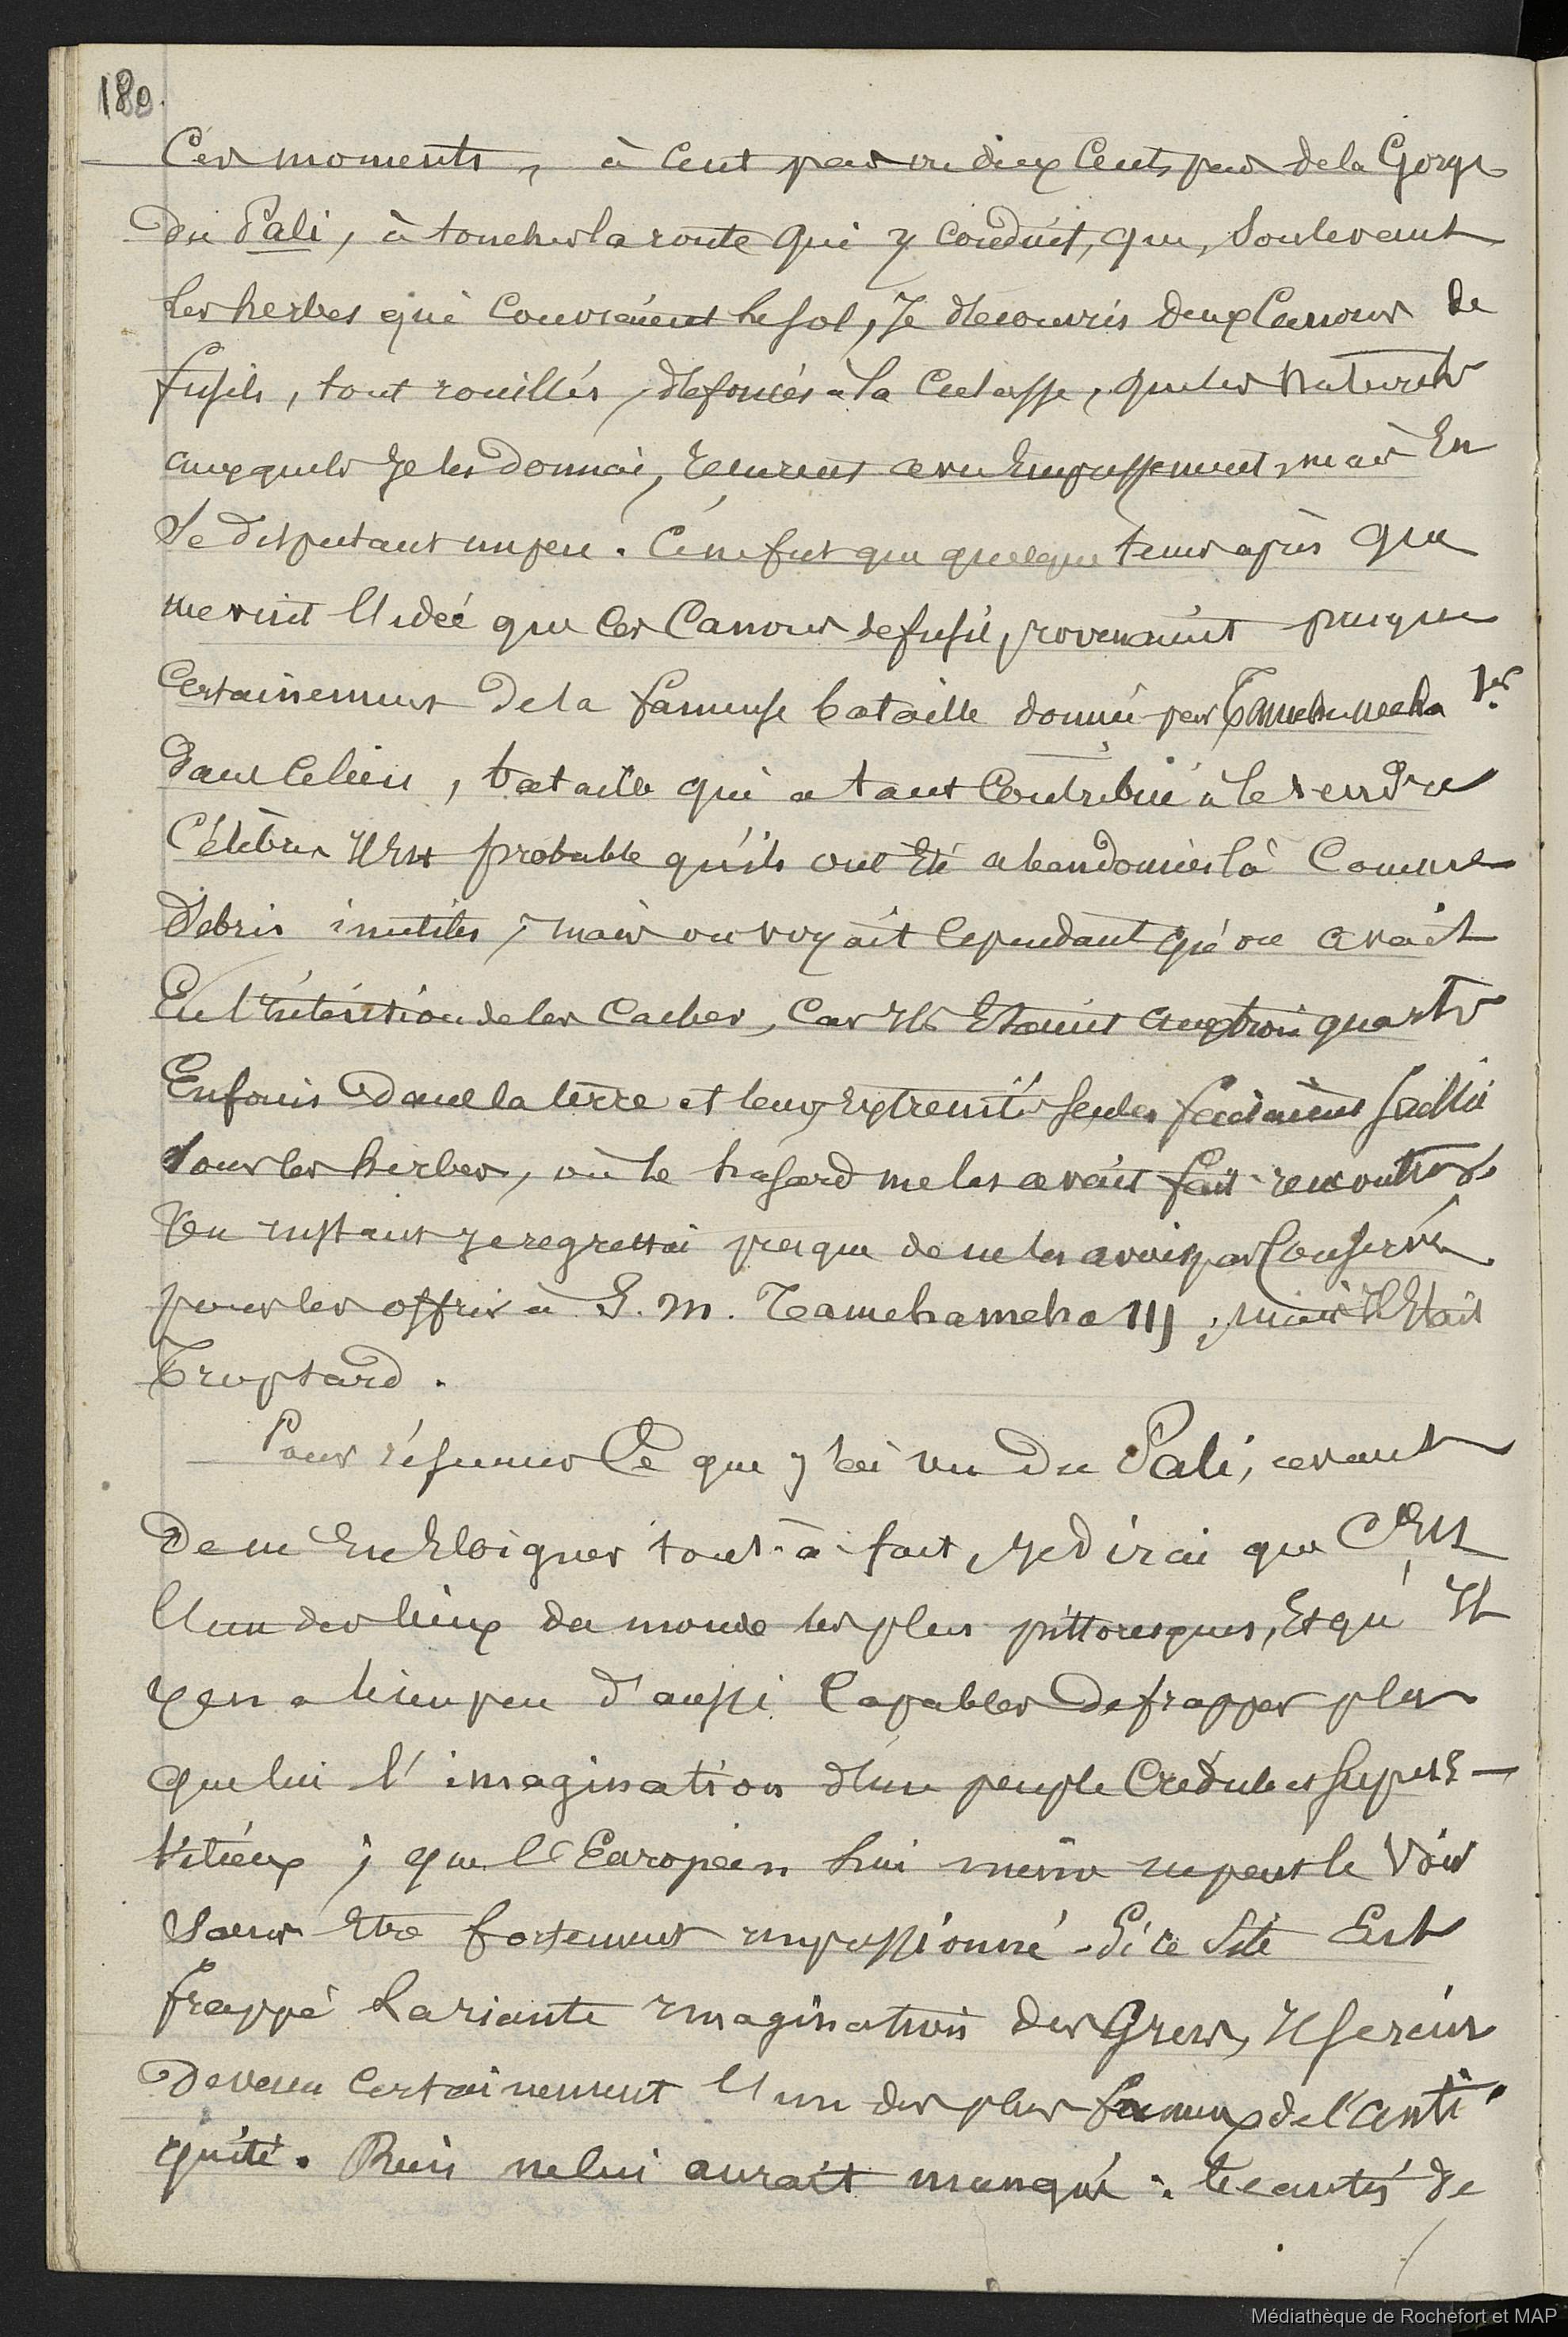 180.
Ces moments, à cent pas ou deux cents pas de la Gorge
du Pali, à toucher la route qui y conduit, que, soulevant
les herbes qui couvraient le sol, je découvris deux canons de
fusils, tout rouillés, défoncés à la culasse, que les naturels
auxquels je les donnai, reçurent avec empressement, mais en
se disputant un peu. Ce ne fut que quelque tems après que
me vint l'idée que ces canons de fusil, provenaient presque
certainement de la fameuse bataille donnée par Tamehameha 1er
dans ce lieu, bataille qui a tant contribué à le rendre
célèbre. Il est probable qu'ils ont été abandonnés là comme
débris inutiles ; mais on voyait cependant qu'on avait
eu l'intention de les cacher, car ils étaient aux trois quarts
enfouis dans la terre et leurs extremités seules faisaient saillie
sous les herbes, où le hasard me les avait fait rencontrer.
Un instant je regrettai presque de ne les avoir pas conservés
pour les offrir à S. M. Tamehameha III ; mais il était
trop tard.
Pour résumer ce que j'ai vu du Pali, avant
de m'en éloigner tout-à-fait, je dirai que c'est
l'un des lieux du monde les plus pittoresques, et qu'il
y en a bien peu d'aussi capables de frapper plus
que lui l'imagination d'un peuple crédule et supers-
titieux ; que l'Européen lui même ne peut le voir
sans être fortement impressionné. Si ce site eut
frappé la riante imagination des Grecs, il serait
devenu certainement l'un des plus fameux de l'anti-
quité. Rien ne lui aurait manqué : beautés de
Médiathèque de Rochefort et MAP